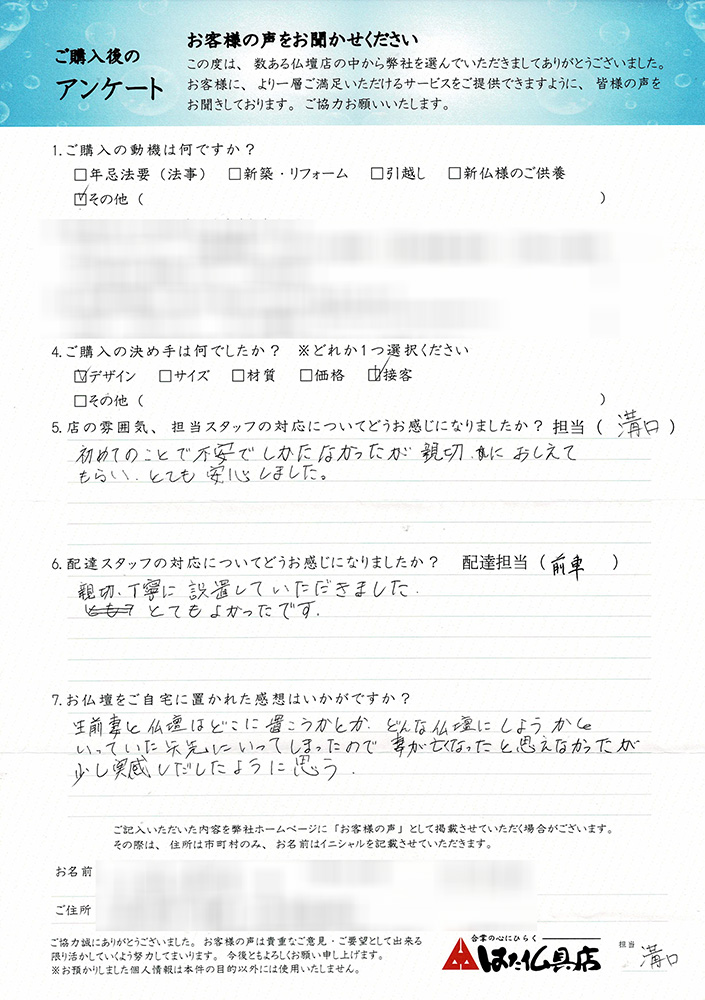 ご購入後の
アンケート
お客様の声をお聞かせください
この度は、数ある仏壇店の中から弊社を選んでいただきましてありがとうございました。
お客様に、より一層ご満足いただけるサービスをご提供できますように、皆様の声を
お聞きしております。ご協力お願いいたします。
1.ご購入の動機は何ですか？
□年忌法要（法事） □新築・リフォーム □引越し □新仏様のご供養
☑その他（ ）
4.ご購入の決め手は何でしたか？ ※どれか1つ選択ください
☑デザイン □サイズ □材質 □価格 ☑接客
□その他（ ）
5.店の雰囲気、担当スタッフの対応についてどうお感じになりましたか？担当（ 溝口 ）
初めてのことで不安でしかたなかったが 親切 に おしえて
もらい、とても 安心しました。
6.配達スタッフの対応についてどうお感じになりましたか？ 配達担当（前車 ）
親切、丁寧に 設置していただきました.
とてもよかったです.
7.お仏壇をご自宅に置かれた感想はいかがですか？
生前妻と仏壇はどこに置こうかとか、どんな仏壇にしようか
いっていた 先にいってしまったので 妻が亡くなったと思えなかったが
少し実感しだしたように思う.
ご記入いただいた内容を弊社ホームページに「お客様の声」として掲載させていただく場合がございます。
その際は、住所は市町村のみ、お名前はイニシャルを記載させていただきます。
お名前
ご住所
ご協力誠にありがとうございました。お客様の声は貴重なご意見・ご要望として出来る
限り活かしていくよう努力してまいります。今後ともよろしくお願い申し上げます。
※お預かりしました個人情報は本件の目的以外には使用いたしません。
合掌の心にひらく
はた仏具店
担当
溝口